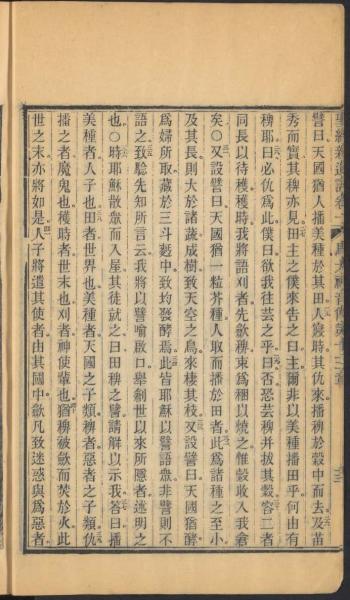 譬曰天國猶人播美種於其田人寢時其仇來播稗於穀中而去及苗
秀而實其稗亦見田主之僕來告之曰主爾非以美種播田乎何由有
稗耶曰必仇爲此僕曰欲我往芸之乎曰否恐芸稗并拔其穀容二者
同長以待穫穫時我將語刈者先歛稗束爲稇以燒之惟穀收入我倉
矣○又設譬曰天國猶一粒芥種人取而播於田者此爲諸種之至小
及其長則大於諸蔬成樹致天空之鳥來棲其枝又設譬曰天國猶酵
爲婦所取藏於三斗麪中致均發酵焉此皆耶穌以譬語眾非譬則不
語之致驗先知所言云我將以譬喻啟口舉創世以來所隱者述明之
也○時耶穌散眾而入屋其徒就之曰田稗之譬請解以示我答曰播
美種者人子也田者世界也美種者天國之子類稗者惡者之子類仇
播之者魔鬼也穫時者世末也刈者神使輩也猶稗被歛而焚於火此
世之末亦將如是人子將遣其使者由其國中歛凡致迷惑與爲惡者